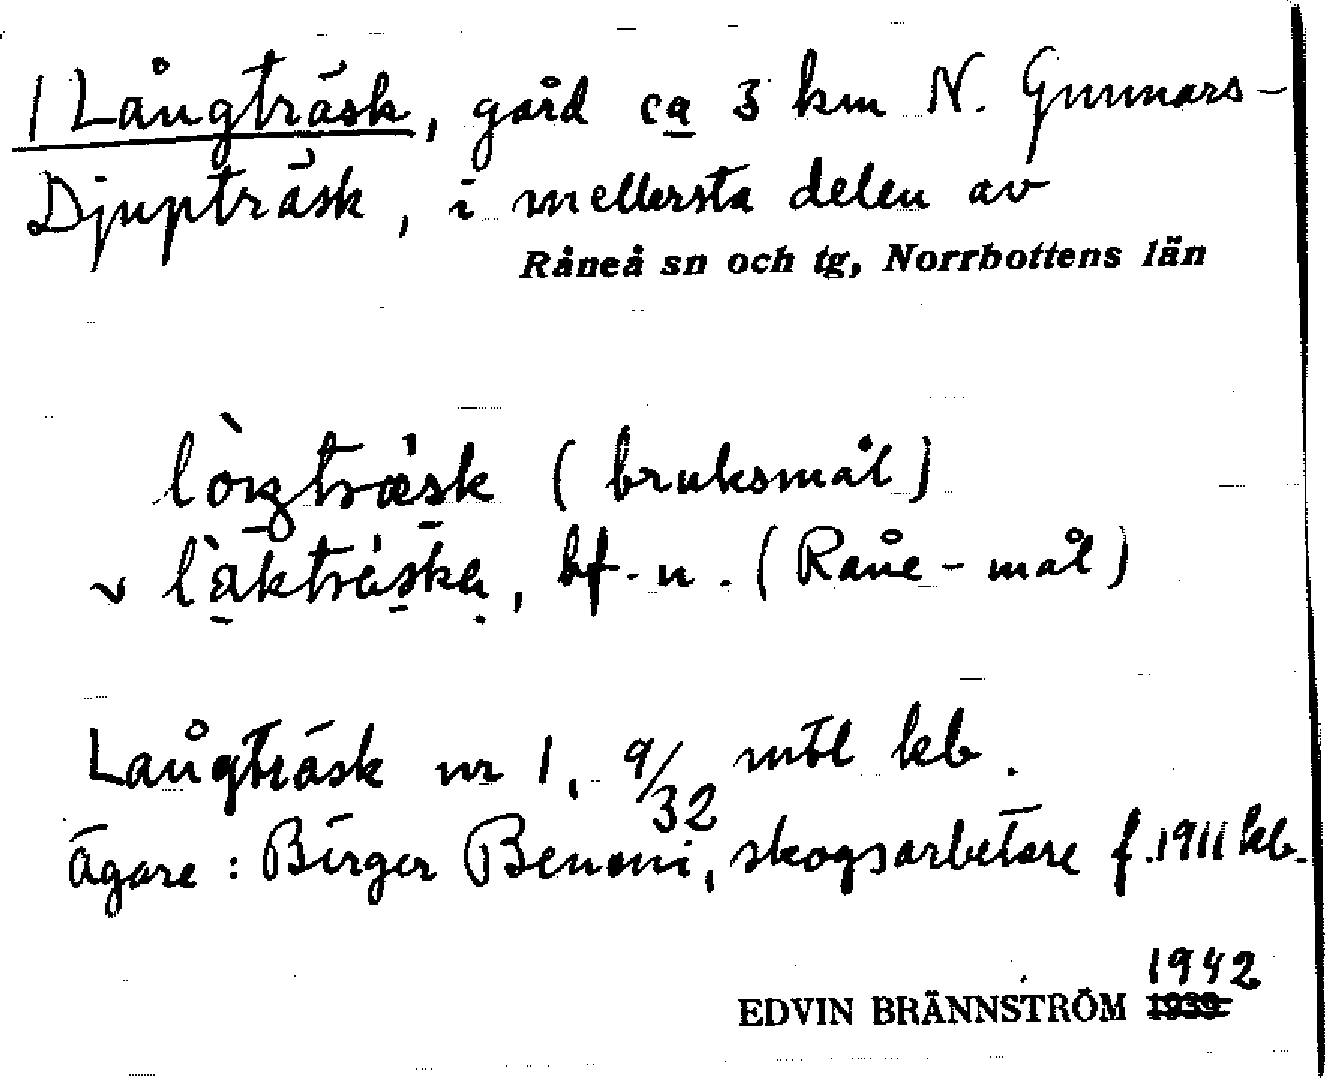 1 Långträsk, gård ca 3 km N. Gunnars-
Djupträsk, i mellersta delen av
Råneå sn och tg, Norrbottens län
(bruksmål)
bf. n. (Råne-mål)
Långträsk nr 1, 9/32 mtl kb.
Ägare: Birger Benoni, skogsarbetare f. 1911 kb.
1942
EDVIN BRÄNNSTRÖM 1939